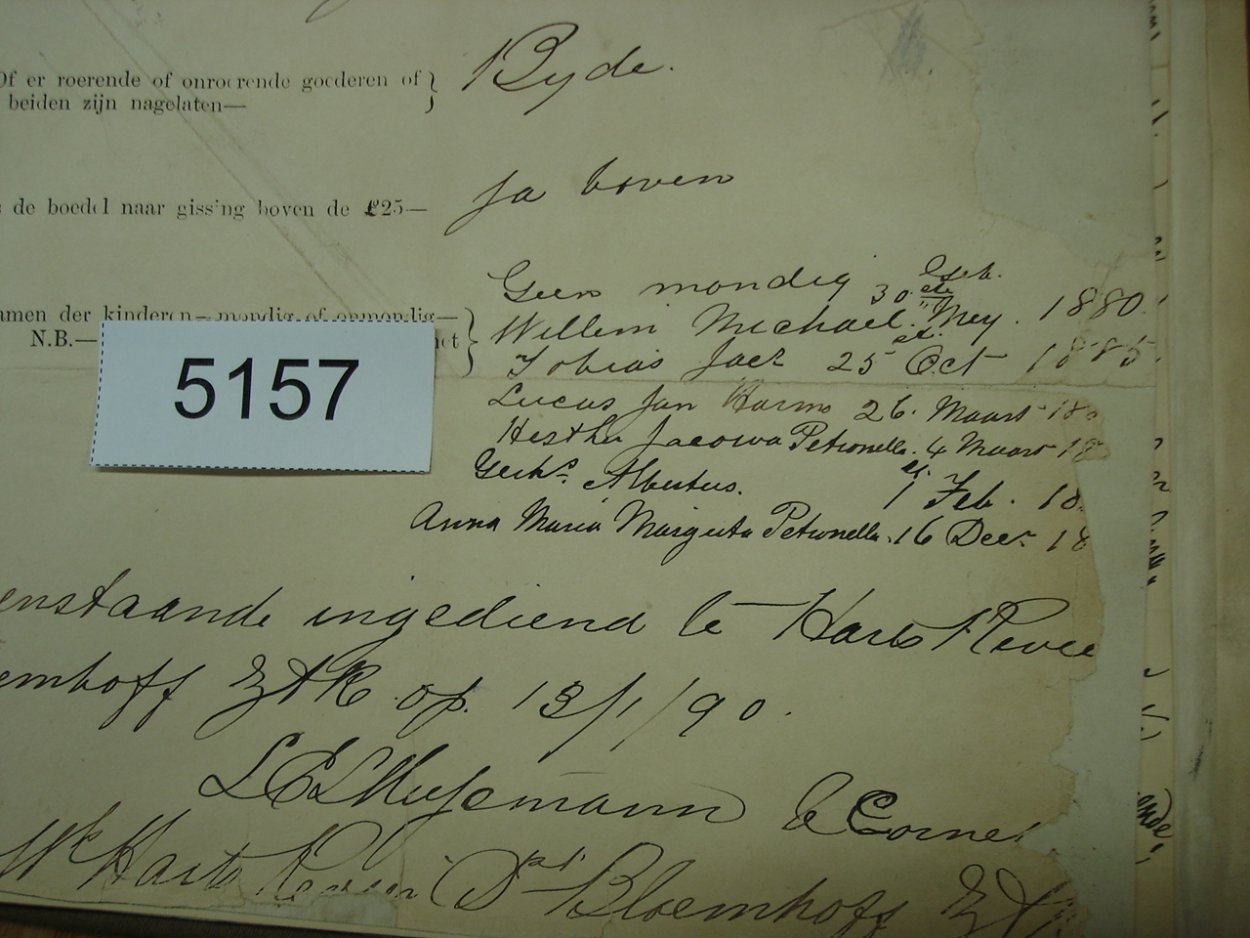 Of er roerende of onroerende goederen of } Byde.
beiden zijn nagelaten—
s de boedel naar gissing boven de £25— Ja boven
Geen mondig Geb.
amen der kinderen—mondig of onmondig—
N.B.—
Willem Michael. 30 Mey. 1880
Tobias Jacs 25 Oct 1885
5157
Lucas Jan Harms 26. Maart 18
Hester Jacowa Petronella. 4 Maart 18
Gerhs. Albertus. 1 Feb. 18
Anna Maria Margreta Petronella. 16 Decr 18
enstaande ingediend te Harts Revier
emhoff ZAR op 13/1/90.
Musemann
Harts Revier Dist Bloemhoff ZA